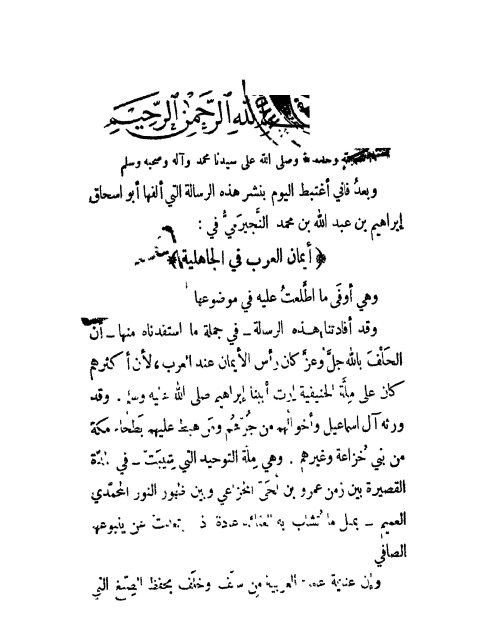 الله الرحمن الرحيم
وحده وصلى الله على سيدنا محمد وآله وصحبه وسلم
وبعدُ فاني أغتبط اليوم بنشر هذه الرسالة التي ألفها أبو اسحاق
إبراهيم بن عبد الله بن محمد النَّجِيرَميُّ في :
﴿ أيمان العرب في الجاهلية ﴾
وهي أوفَى ما اطَّلعتُ عليه في موضوعها
وقد أفادتنا هذه الرسالة ــ في جملة ما استفدناه منها ــ أن
الحَلْفَ بالله جلَّ وعزَّ كان رأس الأيمان عند العرب، لأن أكثرهم
كان على مِلَّة الحنيفية إرث أبينا إبراهيم صلى الله عليه وسلم . وقد
ورثه آل اسماعيل وأخوالهم من جُرْهُم ومن هبط عليهم بَطْحاء مكة
من بني خُزاعة وغيرهم . وهي مِلَّة التوحيد التي شِيبَتْ ــ في المدّة
القصيرة بين زمن عمرو بن لُحَيّ الخزاعي وبين ظهور النور المحمّدي
العميم ــ بمثل ما تُشاب به العقائد عادة عن ينبوعها
الصافي
وإن عناية علماء العربية من سَلَف وخَلَف بحفظ الصِّيَغ التي